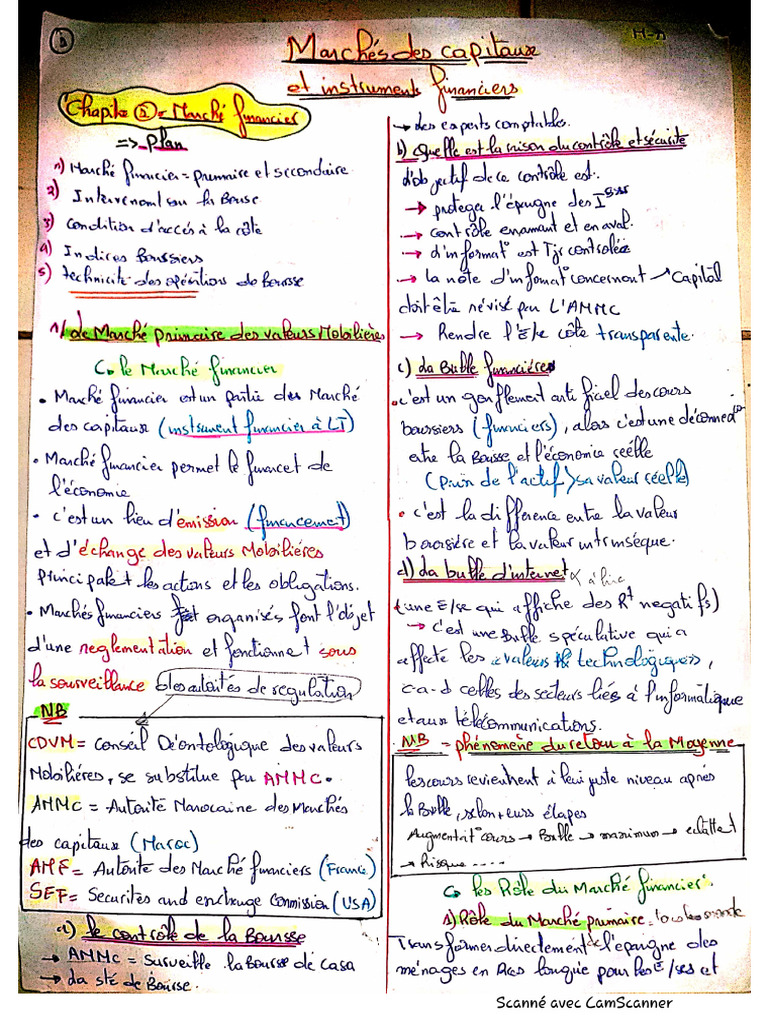 Marchés des capitaux
et instruments financiers
Chapitre ② = Marché financier
=> Plan
1) Marché financier = primaire et secondaire
2) Intervenant sur la Bourse
3) Condition d'accès à la côte
4) Indices Boursiers
5) technicité des opérations de Bourse
1/ Le Marché primaire des valeurs Mobilières
le Marché financier
• Marché financier est un partie des Marché
des capitaux (instrument financier à LT)
• Marché financier permet le financet de
l'économie
• c'est un lieu d'émission (financement)
et d'échange des valeurs Mobilières
principalet les actions et les obligations.
• Marchés financiers organisés font l'objet
d'une reglementation et fonctionnet sous
la sourveillance des autorités de regulation
NB
CDVM = Conseil Déontologique des valeurs
Mobilières, se substitue par AMMC.
AMMC = Autorité Marocaine des Marchés
des capitaux (Maroc)
AMF = Autorité des Marché financiers (France)
SEF = Securites and exchange Commission (USA)
a) le contrôle de la Boursse
→ AMMC = Surveille la Bourse de Casa
→ La sté de Bourse.
→ des experts comptables.
b) Quelle est la raison du contrôle et sécurité
L'objectif de ce contrôle est.
→ proteger l'épargne des
→ contrôle en amant et en aval.
→ L'informat° est Tjr controlée
→ la note d'informat° concernant → Capital
doit être révisé par L'AMMC
→ Rendre l'E/se côte transparente.
c) La Bulle financières
• c'est un gonflement artificiel des cours
boursiers (financiers), alors c'est une déconned°
entre la Bourse et l'économie réelle
(Prix de l'actif > sa valeur réelle)
• c'est la difference entre la valeur
boursière et la valeur intrinsèque.
d) La bulle d'internet à lire
(une E/se qui affiche des Rt negatifs)
→ c'est une Bulle spéculative qui a
affecté les valeurs technologiques,
c-a-d celles des secteurs liés à l'informatique
et aux télécommunications.
NB = phénomène du retour à la Moyenne
les cours revientent à leur juste niveau après
la Bulle, selon +eurs étapes
Augmentat° cours → Bulle → maximum → eclattent
→ Risque .....
les Rôle du Marché financier.
1) Rôle du Marché primaire =
Transformer directement l'epargne des
ménages en Rces longue pour les E/ses et
Scanné avec CamScanner